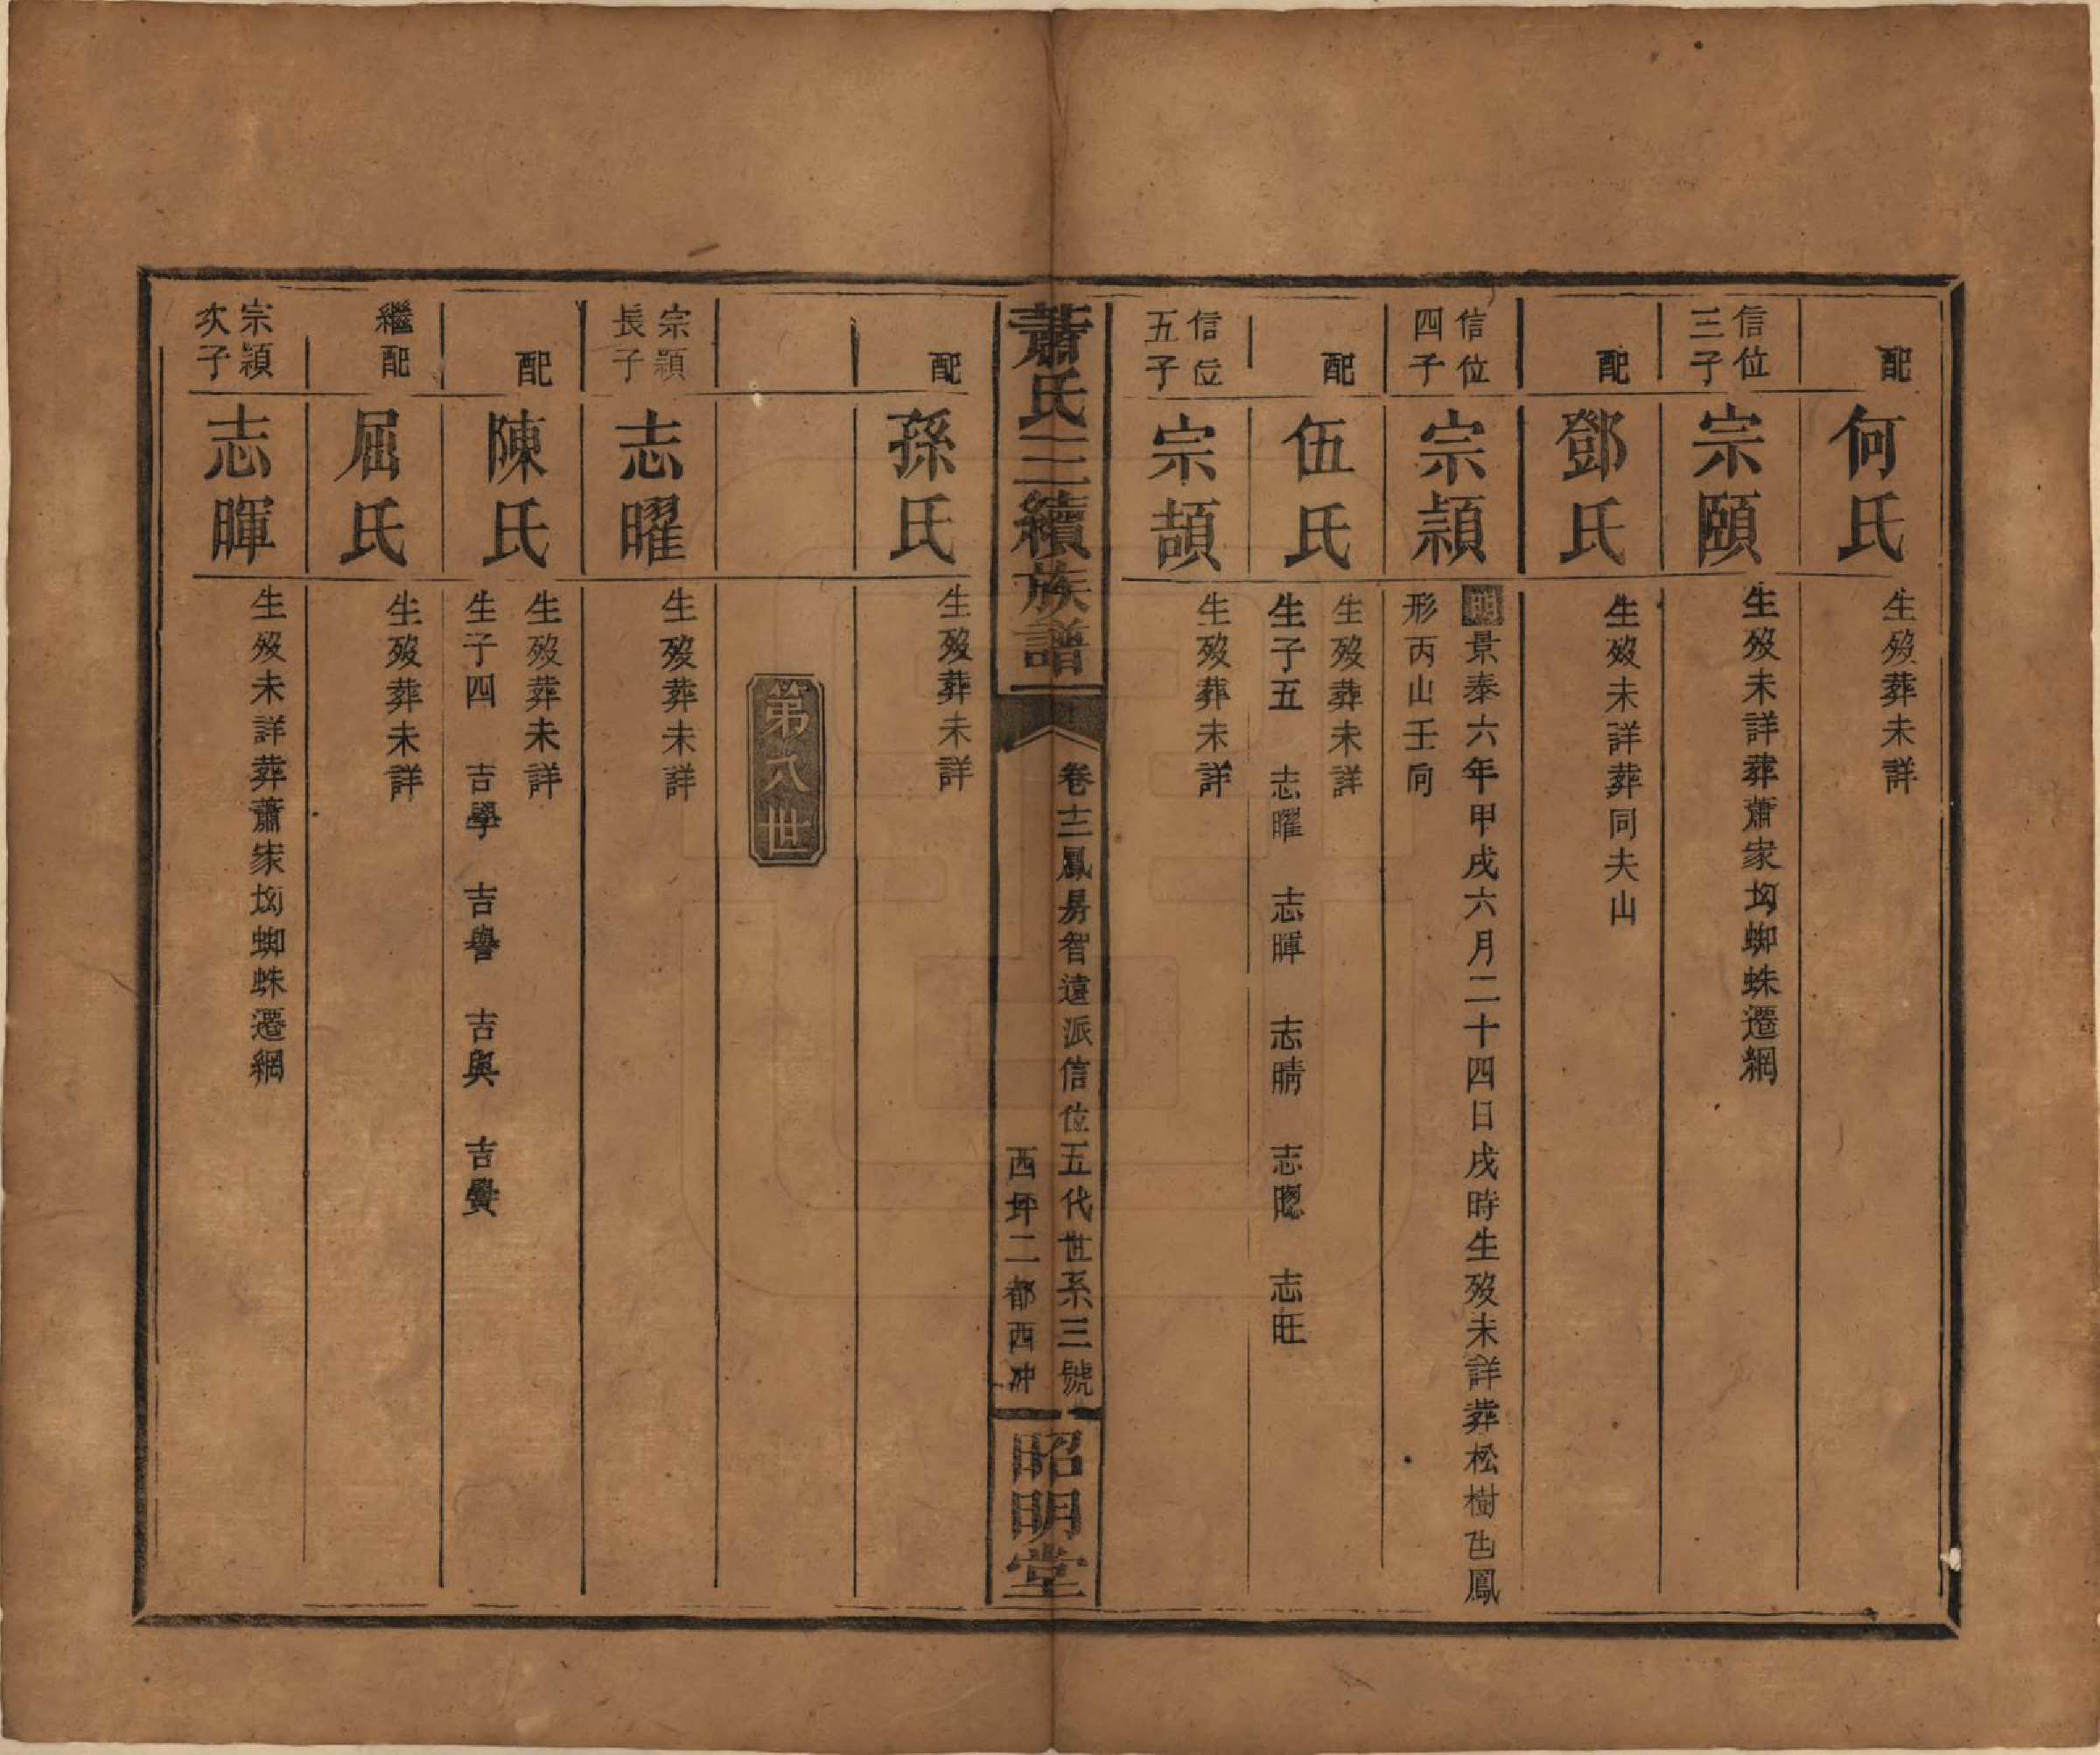 配 何氏 生歿葬未詳
信位三子 宗頤 生歿未詳葬蕭家坳蜘蛛遷網
配 鄧氏 生歿未詳葬同夫山
信位四子 宗頴 明景泰六年甲戌六月二十四日戌時生歿未詳葬松樹凸鳳
形丙山壬向
配 伍氏 生歿葬未詳
生子五 志曜 志暉 志晴 志聰 志旺
信位五子 宗頡 生歿葬未詳
蕭氏三續族譜 卷十二鳳房智遠派信位五代世系三號
西坪二都西冲
昭明堂
配 孫氏 生歿葬未詳
第八世
宗頴長子 志曜 生歿葬未詳
配 陳氏 生歿葬未詳
生子四 吉學 吉譽 吉與 吉賢
繼配 屈氏 生歿葬未詳
宗頴次子 志暉 生歿未詳葬蕭家坳蜘蛛遷網